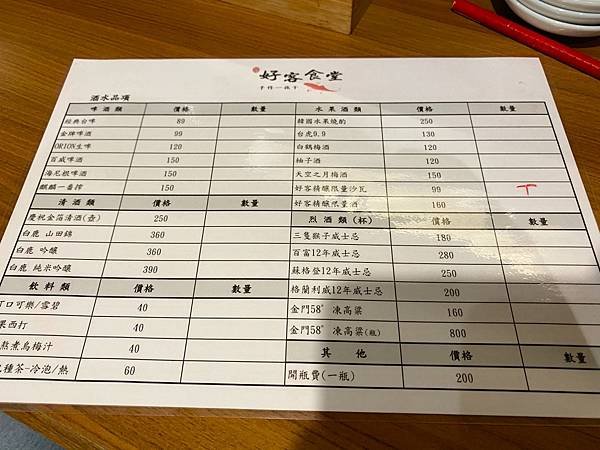 好客食堂
手作一夜干
酒水品項
啤酒類 價格 數量
經典台啤 89
金牌啤酒 99
ORION生啤 120
百威啤酒 150
海尼根啤酒 150
麒麟一番搾 150
清酒類 價格 數量
慶祝金箔清酒(壺) 250
白鹿 山田錦 360
白鹿 吟釀 360
白鹿 純米吟釀 390
飲料類 價格 數量
可口可樂/雪碧 40
果西打 40
熱煮烏梅汁 40
種茶-冷泡/熱 60
水果酒類 價格 數量
韓國水果燒酌 250
台虎9.9 130
白鶴梅酒 120
柚子酒 120
天空之月梅酒 150
好客精釀限量沙瓦 99 一丁
好客精釀限量酒 160
烈酒類(杯) 價格 數量
三隻猴子威士忌 180
百富12年威士忌 280
蘇格登12年威士忌 250
格蘭利威12年威士忌 200
金門58° 凍高粱 160
金門58° 凍高粱(瓶) 800
其他 價格 數量
開瓶費(一瓶) 200